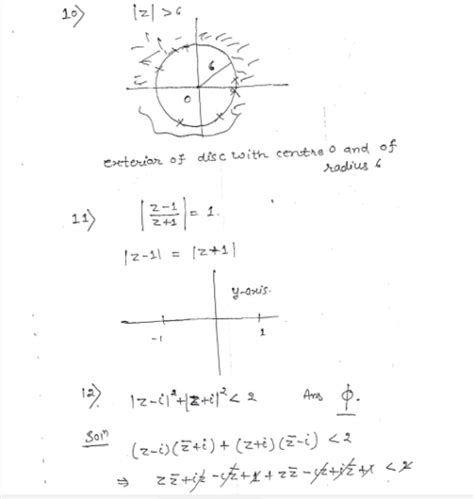 10) |z| > 6
6
0
exterior of disc with centre 0 and of
radius 6
11) |z-1/z+1| = 1.
|z-1| = |z+1|
y-axis.
-1 1
12) |z-i|²+|z+i|² < 2 Ans ϕ.
Solⁿ
(z-i)(z̄+i) + (z+i)(z̄-i) < 2
⇒ zz̄+iz-iz̄+1+zz̄-iz+iz̄+1 < 2